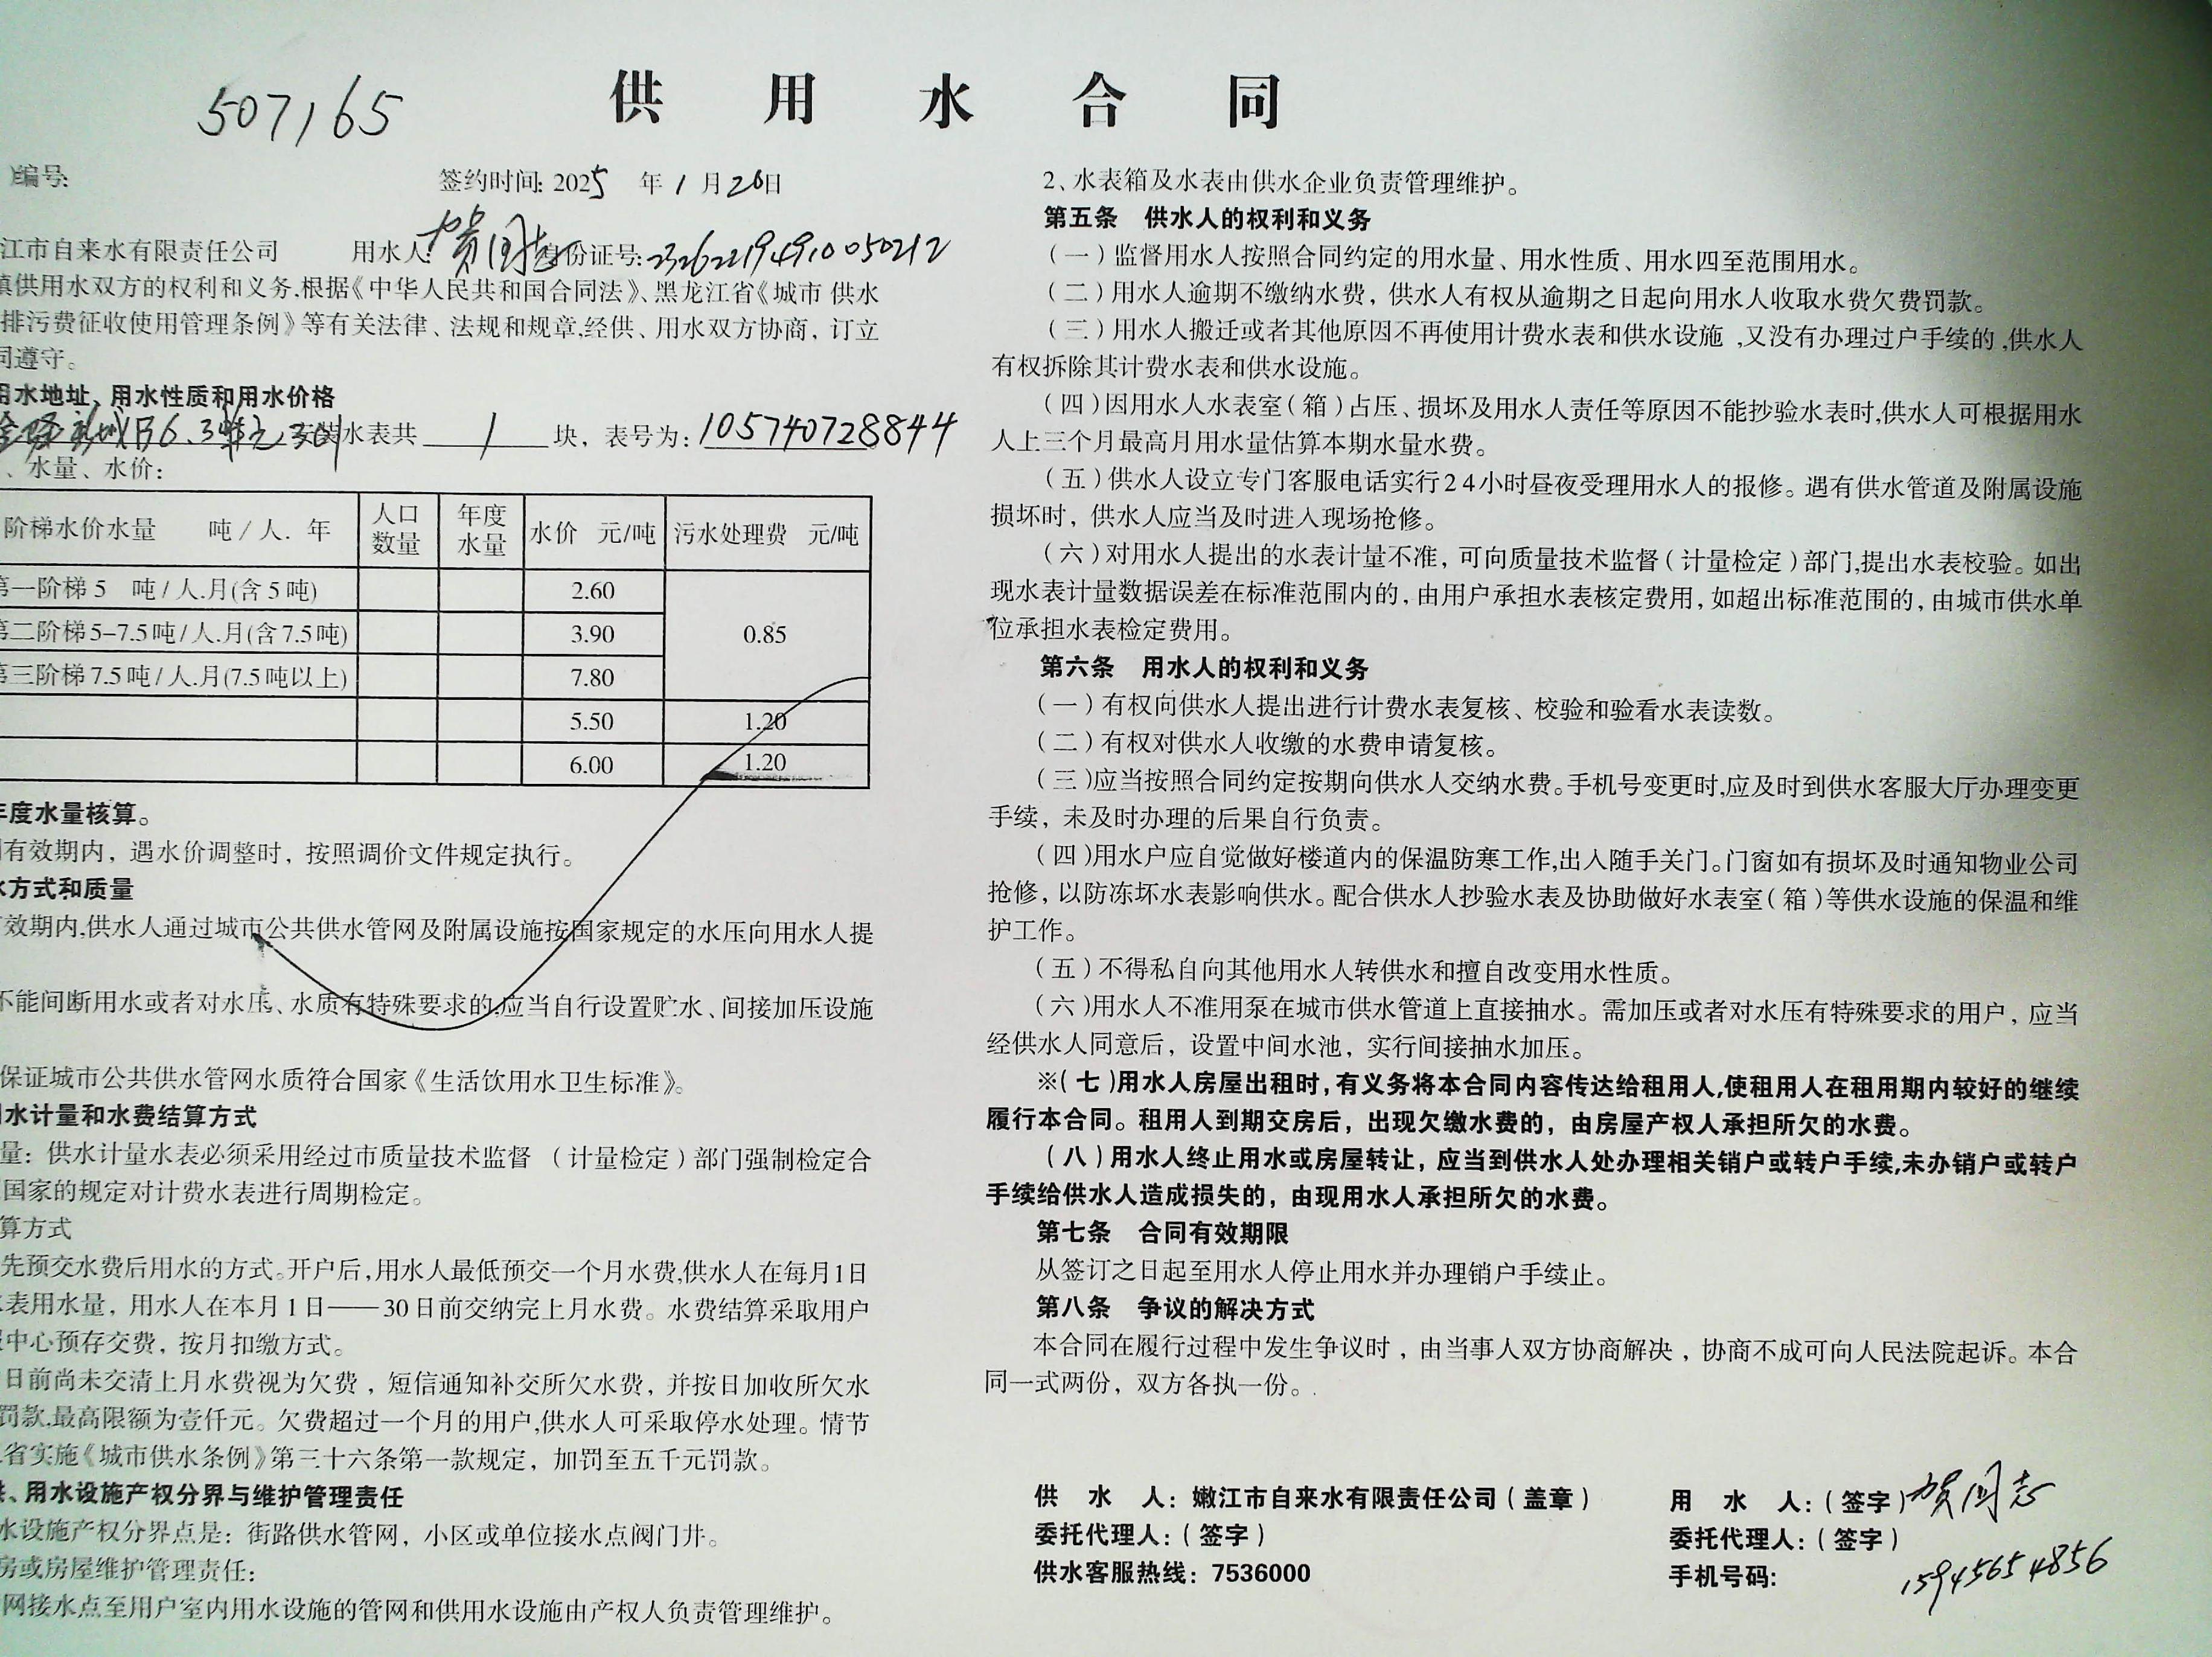 供用水合同
507165
编号:
签约时间: 2025 年 1 月 20日
江市自来水有限责任公司 用水人: 贺同志 身份证号: 232622194910050212
供用水双方的权利和义务,根据《中华人民共和国合同法》、黑龙江省《城市 供水
排污费征收使用管理条例》等有关法律、法规和规章,经供、用水双方协商，订立
同遵守。
用水地址、用水性质和用水价格
新城B6.3单元301 水表共 1 块，表号为: 105740728844
、水量、水价:
阶梯水价水量 吨/人.年 人口数量 年度水量 水价 元/吨 污水处理费 元/吨
第一阶梯5 吨/人.月(含5吨) 2.60 0.85
第二阶梯5-7.5吨/人.月(含7.5吨) 3.90
第三阶梯7.5吨/人.月(7.5吨以上) 7.80
5.50 1.20
6.00 1.20
年度水量核算。
有效期内，遇水价调整时，按照调价文件规定执行。
水方式和质量
效期内,供水人通过城市公共供水管网及附属设施按国家规定的水压向用水人提
不能间断用水或者对水压、水质有特殊要求的,应当自行设置贮水、间接加压设施
保证城市公共供水管网水质符合国家《生活饮用水卫生标准》。
水计量和水费结算方式
量：供水计量水表必须采用经过市质量技术监督（计量检定）部门强制检定合
国家的规定对计费水表进行周期检定。
算方式
先预交水费后用水的方式。开户后,用水人最低预交一个月水费,供水人在每月1日
表用水量，用水人在本月1日——30日前交纳完上月水费。水费结算采取用户
中心预存交费，按月扣缴方式。
日前尚未交清上月水费视为欠费，短信通知补交所欠水费，并按日加收所欠水
罚款,最高限额为壹仟元。欠费超过一个月的用户,供水人可采取停水处理。情节
省实施《城市供水条例》第三十六条第一款规定，加罚至五千元罚款。
、用水设施产权分界与维护管理责任
水设施产权分界点是：街路供水管网，小区或单位接水点阀门井。
房或房屋维护管理责任:
网接水点至用户室内用水设施的管网和供用水设施由产权人负责管理维护。
2、水表箱及水表由供水企业负责管理维护。
第五条 供水人的权利和义务
（一）监督用水人按照合同约定的用水量、用水性质、用水四至范围用水。
（二）用水人逾期不缴纳水费，供水人有权从逾期之日起向用水人收取水费欠费罚款。
（三）用水人搬迁或者其他原因不再使用计费水表和供水设施,又没有办理过户手续的,供水人
有权拆除其计费水表和供水设施。
（四）因用水人水表室（箱）占压、损坏及用水人责任等原因不能抄验水表时,供水人可根据用水
人上三个月最高月用水量估算本期水量水费。
（五）供水人设立专门客服电话实行24小时昼夜受理用水人的报修。遇有供水管道及附属设施
损坏时，供水人应当及时进入现场抢修。
（六）对用水人提出的水表计量不准，可向质量技术监督（计量检定）部门,提出水表校验。如出
现水表计量数据误差在标准范围内的，由用户承担水表核定费用，如超出标准范围的，由城市供水单
位承担水表检定费用。
第六条 用水人的权利和义务
（一）有权向供水人提出进行计费水表复核、校验和验看水表读数。
（二）有权对供水人收缴的水费申请复核。
（三）应当按照合同约定按期向供水人交纳水费。手机号变更时,应及时到供水客服大厅办理变更
手续，未及时办理的后果自行负责。
（四）用水户应自觉做好楼道内的保温防寒工作,出入随手关门。门窗如有损坏及时通知物业公司
抢修，以防冻坏水表影响供水。配合供水人抄验水表及协助做好水表室（箱）等供水设施的保温和维
护工作。
（五）不得私自向其他用水人转供水和擅自改变用水性质。
（六）用水人不准用泵在城市供水管道上直接抽水。需加压或者对水压有特殊要求的用户，应当
经供水人同意后，设置中间水池，实行间接抽水加压。
※（七）用水人房屋出租时，有义务将本合同内容传达给租用人,使租用人在租用期内较好的继续
履行本合同。租用人到期交房后，出现欠缴水费的，由房屋产权人承担所欠的水费。
（八）用水人终止用水或房屋转让，应当到供水人处办理相关销户或转户手续,未办销户或转户
手续给供水人造成损失的，由现用水人承担所欠的水费。
第七条 合同有效期限
从签订之日起至用水人停止用水并办理销户手续止。
第八条 争议的解决方式
本合同在履行过程中发生争议时，由当事人双方协商解决，协商不成可向人民法院起诉。本合
同一式两份，双方各执一份。
供 水 人：嫩江市自来水有限责任公司（盖章） 用 水 人：（签字）贺同志
委托代理人：（签字） 委托代理人：（签字）
供水客服热线：7536000 手机号码: 15945654856